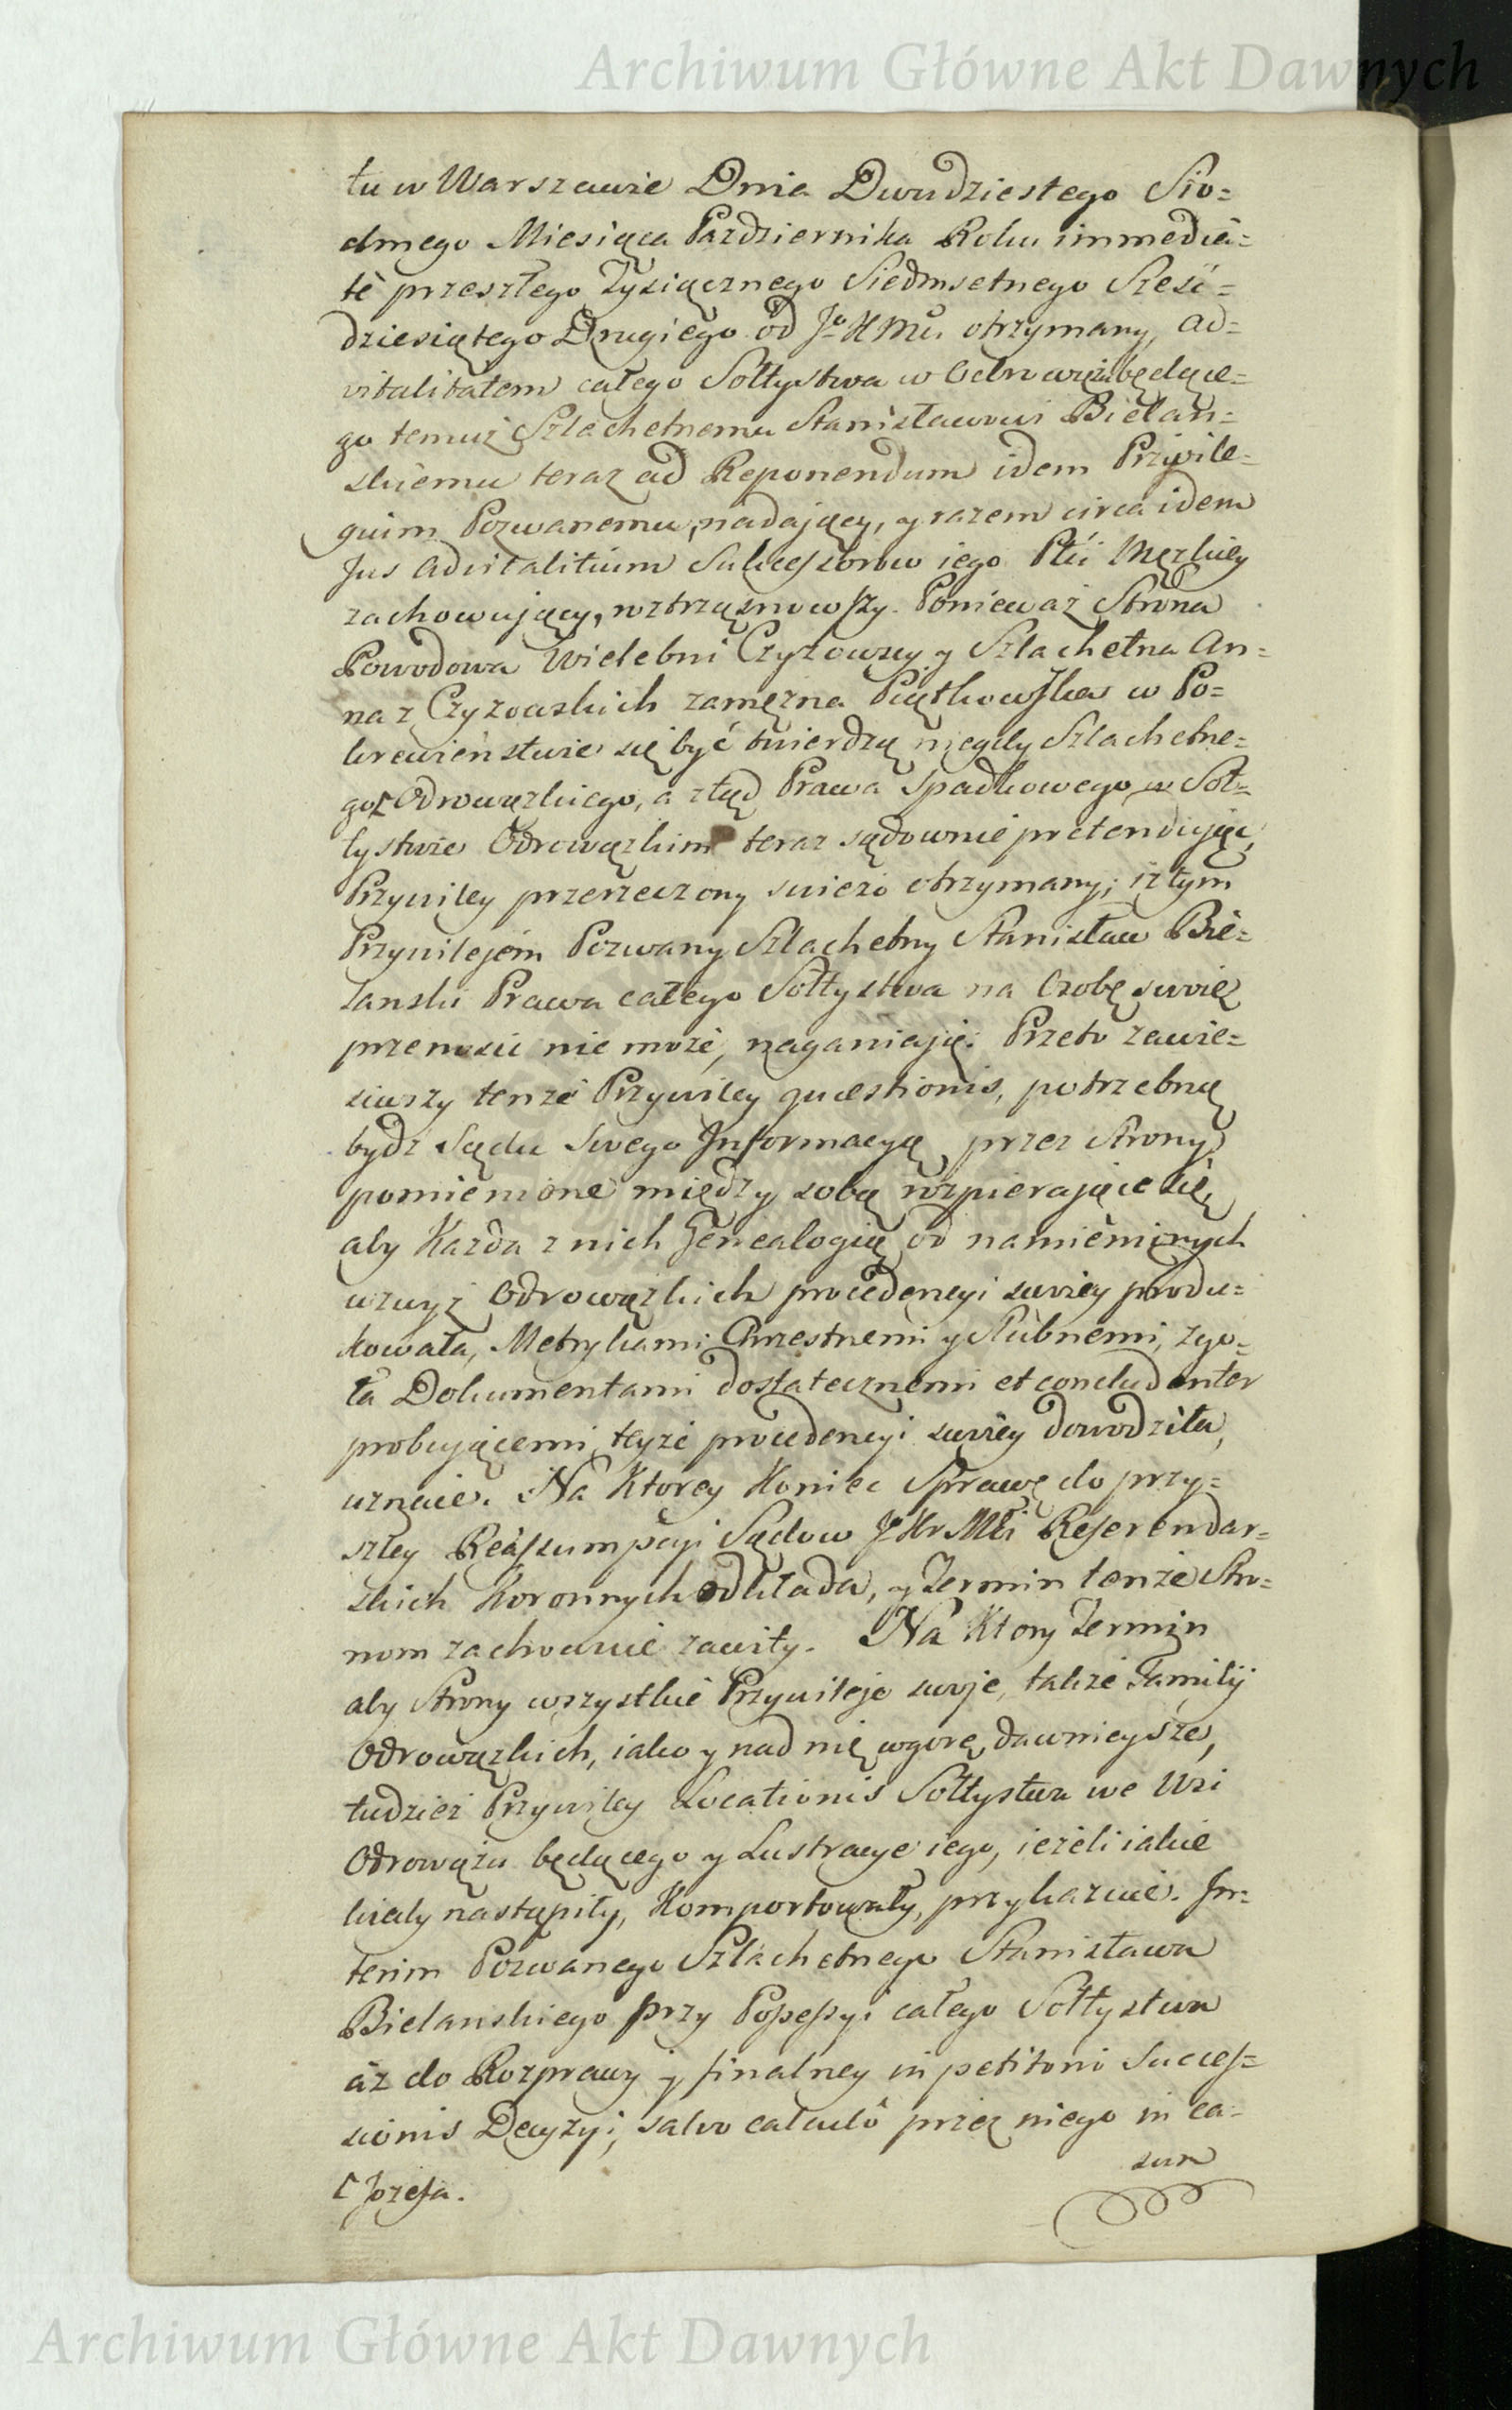 Archiwum Główne Akt Dawnych
tu w Warszawie Dnia Dwudziestego Sio=
dmego Miesiąca Pazdziernika Roku immedia=
tè przeszłego Tysiącznego Siedmsetnego Sześć=
dziesiątego Drugiego od Jo KMci otrzymany, ad=
vitalitatem całego Sołtystwa w Odrowążu będące=
go temuż Szlachetnemu Stanisławowi Bielań=
skiemu teraz ad Reponendum idem Privile=
guim Pozwanemu, nadający, y razem circa idem
Jus Advitalitium Sukcessorow iego Płci Męzkiey
zachowujący, roztrząsnowszy. Ponieważ Strona
Powodowa Wielebni Czyzowscy y Szlachetna An=
na z Czyzowskich zamęzna Piątkowska w Po=
krewieństwie się być twierdzą niegdy Szlachetne=
go⌈ Odrowązkiego, a ztąd Prawa Spadkowego w Soł=
tystwie Odrowązkim teraz sądownie pretendując,
Przywiley przerzeczony swiezo otrzymany, iz tym
Przywilejem Pozwany Szlachetny Stanisław Bie=
lanski Prawa całego Sołtystwa na Osobę swoię
przenosic nie moze, naganiaią. Przeto zawie=
siwszy tenze Przywiley quæstionis, potrzebną
bydz Sądu Swego Informacyą, przez Strony
pomienione między sobą rozpierające się,
aby Kazda z nich Genealogią od namienionych
wzwyz Odrowązkich procedencyi swoiey produ=
kowała, Metrykami Chrzestnemi y Slubnemi, zgo=
ła Dokumentami dostatecznemi et concludenter
probującemi teyze procedencyi swoiey dowodziła,
uznaie. Na Ktorey Koniec Sprawę do przy=
szłey Reassumpcyi Sądow Jo Kr Mci Referendar=
skich Koronnych odkłada, y Termin tenze Stro=
nom zachowuie zawity. Na Ktory Termin
aby Strony wszystkie Przywileje swoje, takze Familij
Odrowązkich, iako y nad nię wgorę dawnieysze,
tudziez Przywiley Locationis Sołtystwa we Wsi
Odrowązu będącego y Lustracye iego, iezeli iakie
kiedy nastąpiły, Komportowały, przykazuie. In=
terim Pozwanego Szlachetnego Stanisława
Bielanskiego przy Possessyi całego Sołtystwa
az do Rozprawy y finalney in petitorio Succes=
sionis Decyzyi, salvo calculô przez niego in ca=
sum
⌈ Jozefa.
Archiwum Główne Akt Dawnych